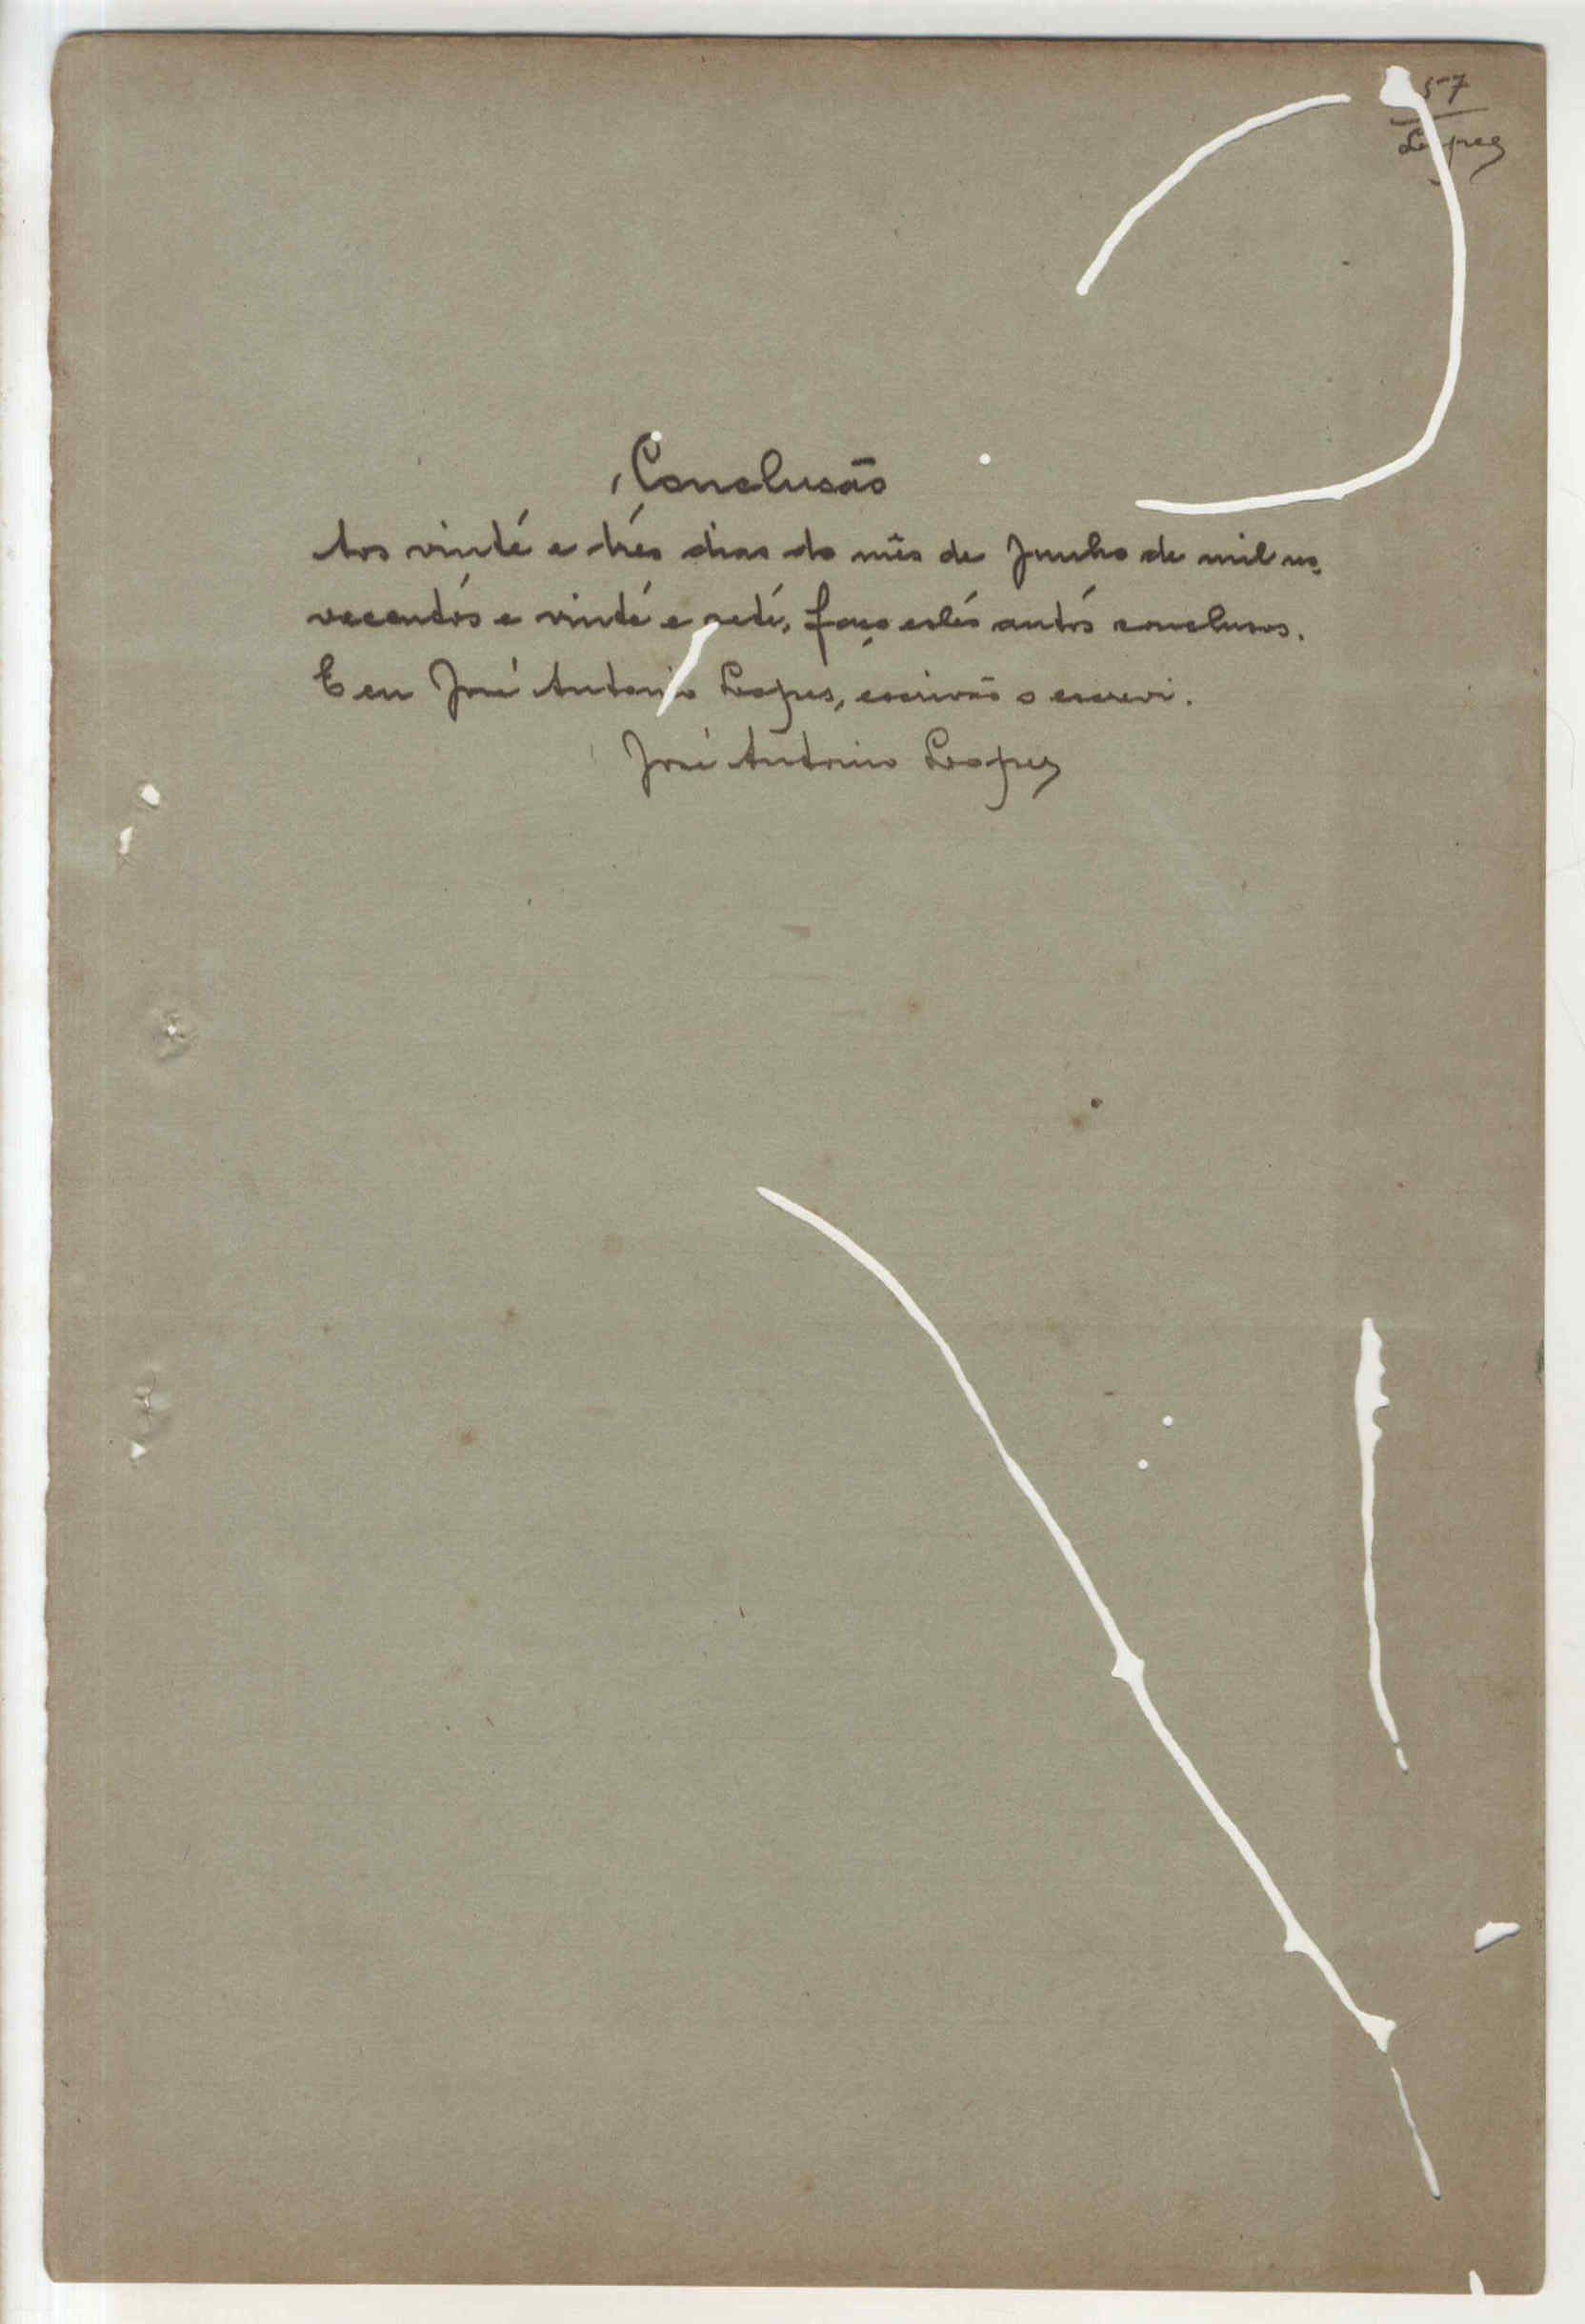 57
Lopes
Conclusão
Aos vinte e três dias do mês de Junho de mil no-
vecentos e vinte e sete, faço estes autos conclusos.
E eu José Antonio Lopes, escrivão o escrevi.
José Antonio Lopes